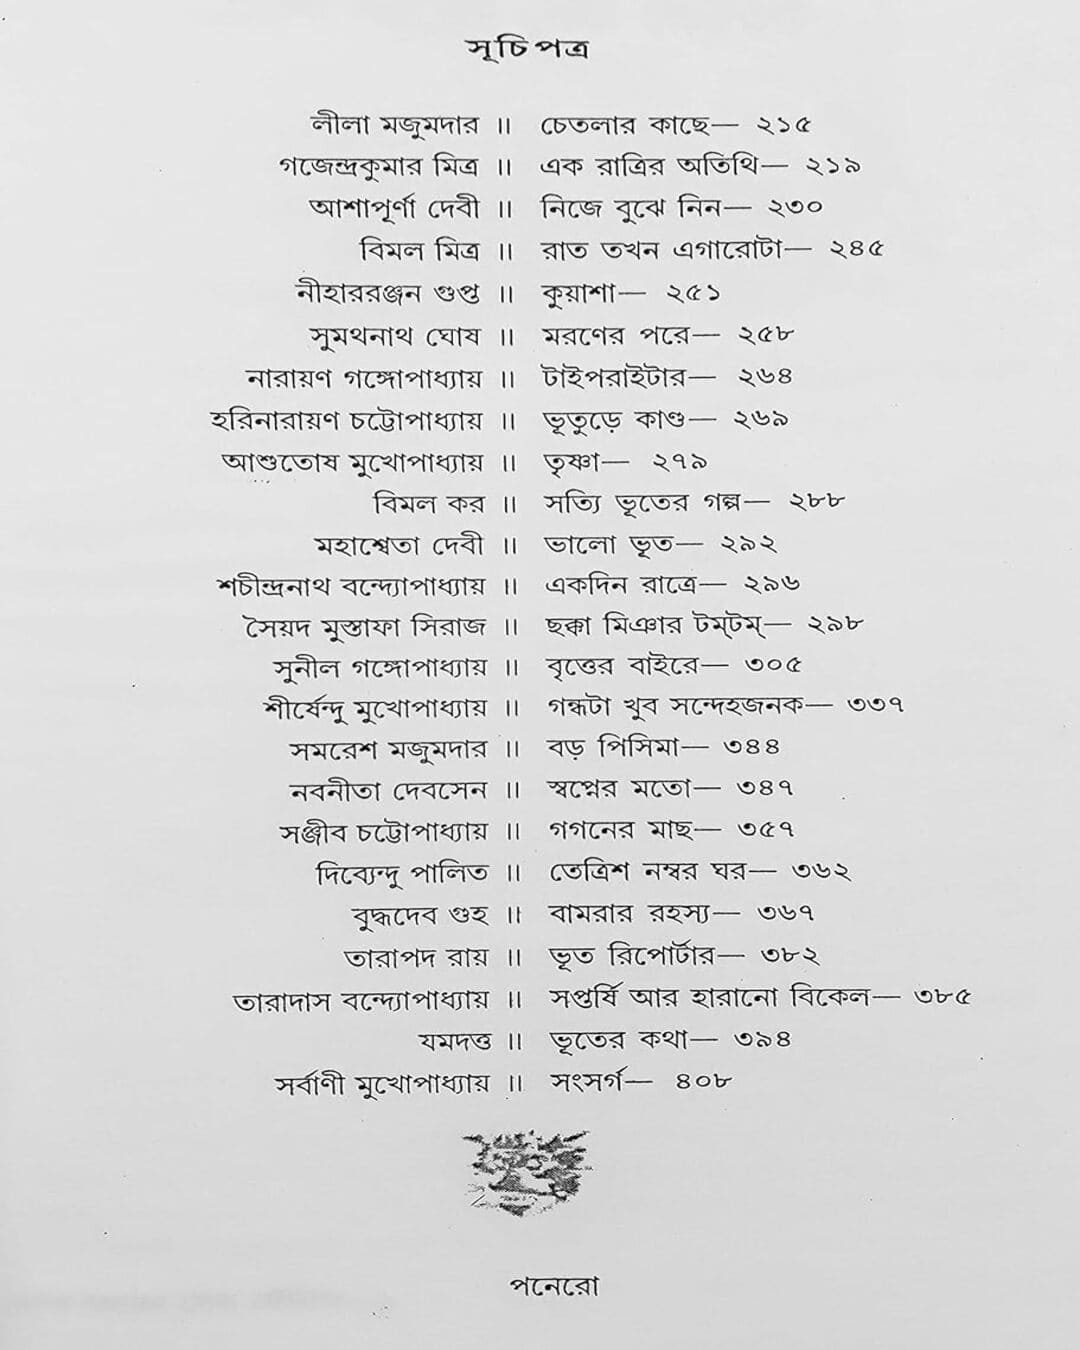 সূচিপত্র
লীলা মজুমদার ॥ চেতলার কাছে— ২১৫
গজেন্দ্রকুমার মিত্র ॥ এক রাত্রির অতিথি— ২১৯
আশাপূর্ণা দেবী ॥ নিজে বুঝে নিন— ২৩০
বিমল মিত্র ॥ রাত তখন এগারোটা— ২৪৫
নীহাররঞ্জন গুপ্ত ॥ কুয়াশা— ২৫১
সুমথনাথ ঘোষ ॥ মরণের পরে— ২৫৮
নারায়ণ গঙ্গোপাধ্যায় ॥ টাইপরাইটার— ২৬৪
হরিনারায়ণ চট্টোপাধ্যায় ॥ ভূতুড়ে কাণ্ড— ২৬৯
আশুতোষ মুখোপাধ্যায় ॥ তৃষ্ণা— ২৭৯
বিমল কর ॥ সত্যি ভূতের গল্প— ২৮৮
মহাশ্বেতা দেবী ॥ ভালো ভূত— ২৯২
শচীন্দ্রনাথ বন্দ্যোপাধ্যায় ॥ একদিন রাত্রে— ২৯৬
সৈয়দ মুস্তাফা সিরাজ ॥ ছক্কা মিঞার টম্‌টম্— ২৯৮
সুনীল গঙ্গোপাধ্যায় ॥ বৃত্তের বাইরে— ৩০৫
শীর্ষেন্দু মুখোপাধ্যায় ॥ গন্ধটা খুব সন্দেহজনক— ৩৩৭
সমরেশ মজুমদার ॥ বড় পিসিমা— ৩৪৪
নবনীতা দেবসেন ॥ স্বপ্নের মতো— ৩৪৭
সঞ্জীব চট্টোপাধ্যায় ॥ গগনের মাছ— ৩৫৭
দিব্যেন্দু পালিত ॥ তেত্রিশ নম্বর ঘর— ৩৬২
বুদ্ধদেব গুহ ॥ বামরার রহস্য— ৩৬৭
তারাপদ রায় ॥ ভূত রিপোর্টার— ৩৮২
তারাদাস বন্দ্যোপাধ্যায় ॥ সপ্তর্ষি আর হারানো বিকেল— ৩৮৫
যমদত্ত ॥ ভূতের কথা— ৩৯৪
সর্বাণী মুখোপাধ্যায় ॥ সংসর্গ— ৪০৮
পনেরো